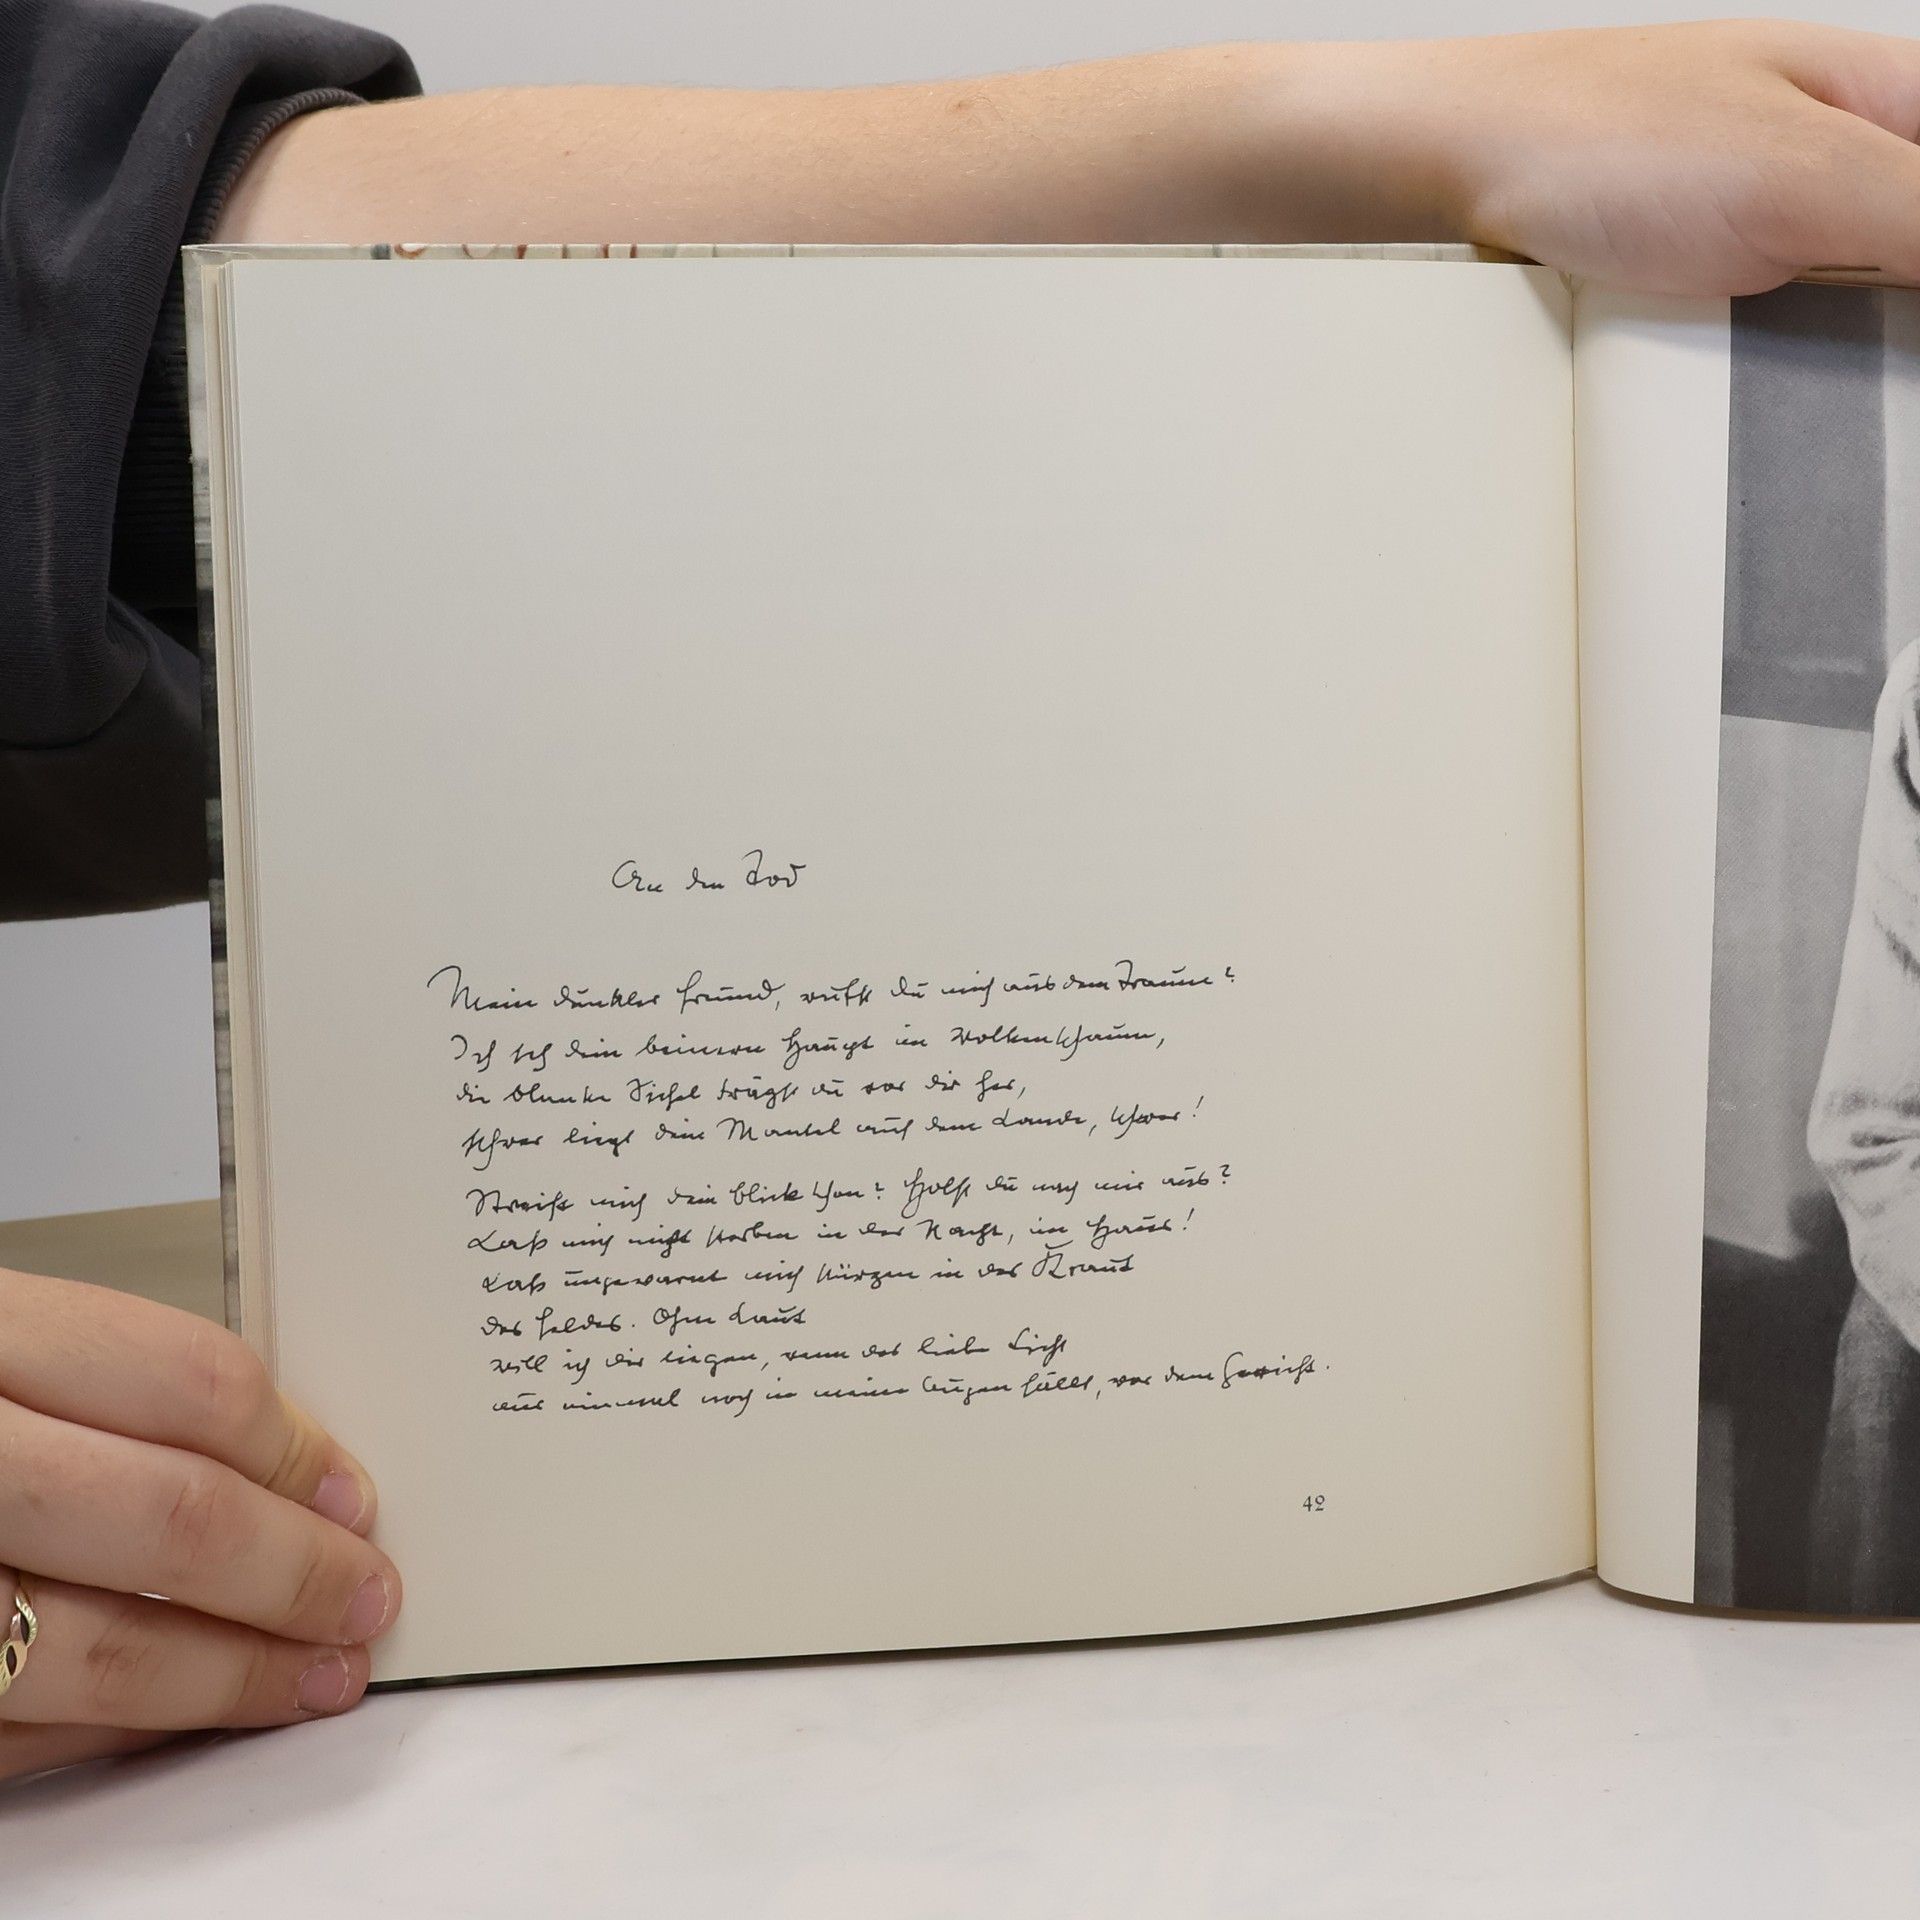 An den Tod
Mein dunkler Freund, rufst du mich aus dem Traum?
Ich seh dein beinern Haupt im Wolkenschaum,
die blanke Sichel trägst du vor dir her,
schwer liegt dein Mantel auf dem Lande, schwer!
Streift mich dein Blick schon? Holst du nach mir aus?
Laß mich nicht sterben in der Nacht, im Haus!
Laß ungewarnt mich stürzen in das Kraut
des Feldes. Ohne Laut
will ich dir liegen, wenn das liebe Licht
nur einmal noch in meine Augen fällt, vor dem Gericht.
42